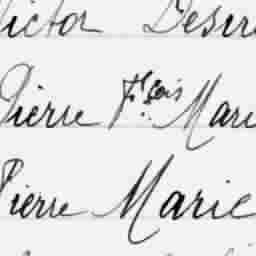 Victor Desiré
Pierre Fçois Marie
Pierre Marie